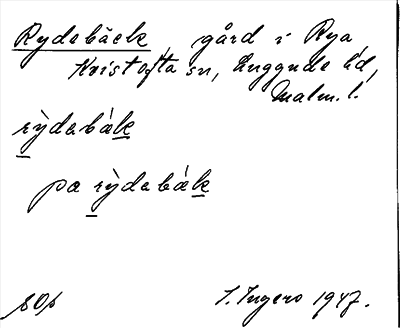 Rydebäck, gård i Rya,
Kvistofta sn, Luggude hd,
Malm. l.
rỳdebák
pa rỳdebák
SOp
I. Ingers 1947.